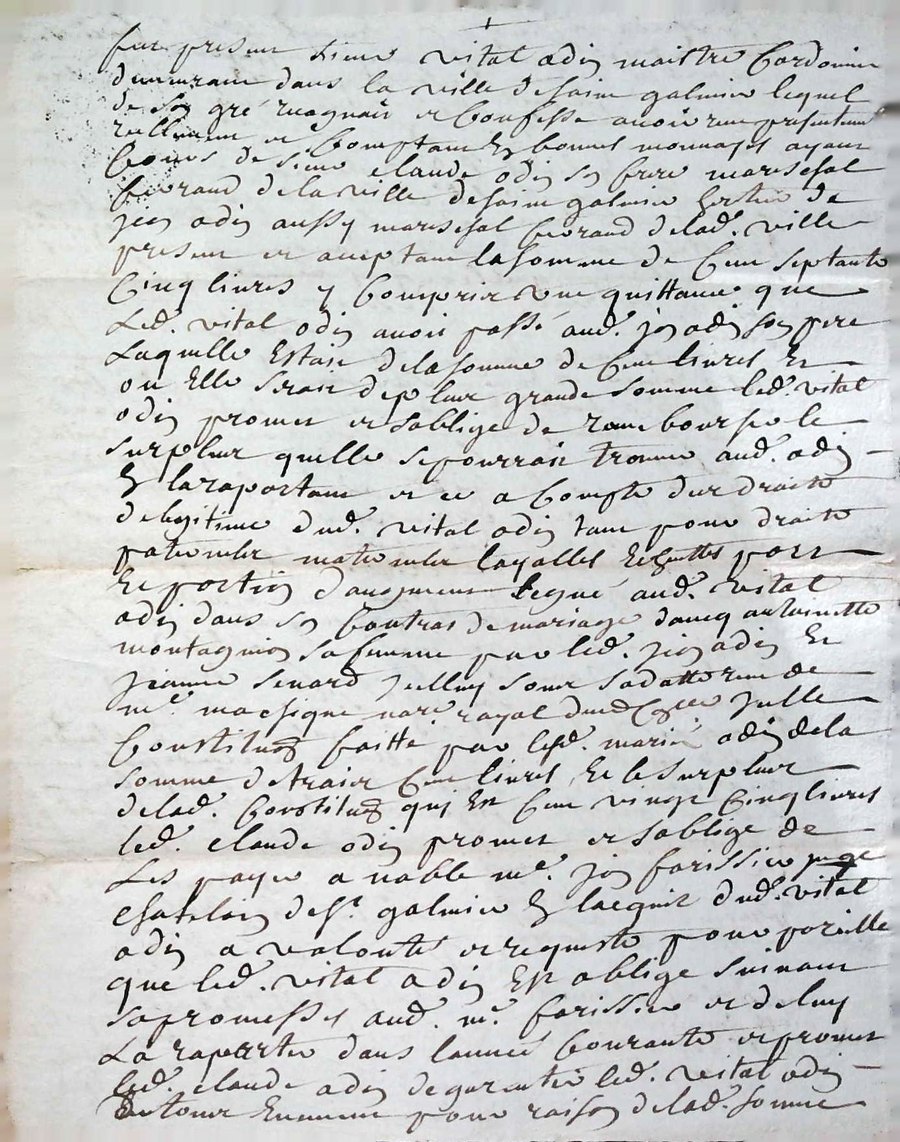 fut present sieur vital odin maistre Cordonnier
demeurant dans la ville de saint galmier lequel
de son gré recognoit et Confesse avoir reseu presentemt
reellement et Comptant en bonnes monnoyes ayant
Cours de sieur claude odin son frere mareschal
ferrand de la ville de saint galmier heritier de
jean odin aussy mareschal ferrand de lad. ville
present et aceptant la somme de Cent septante
Cinq livres y Compris une quittance que
Led. vital odin avoit passé aud. jean odin son pere
Laquelle Estait de la somme de Cent livres Et
ou Elle serait de plus grande somme led. vital
odin promet et s'ablige de rambourser le
surplus quelle se pourrait trouver aud. odin
En la raportant et ce a Compte des droits
de legitime dud. vital odin tant pour droits
paternels maternels part
Et portion d'augment legué aud. vital
odin dans son Contrat de mariage avecq anthoinette
montagnion sa femme par led. jean odin Et
jeanne senard sous sa datte reseu de
me. notre. royal dud. jcelle
Constituon faitte par lesd. mariés odin de la
somme de trois Cent livres Et le surplus
de lad. Constituon qui Est Cent vingt Cinq livres
led. claude odin promet et s'ablige de
Les payer a noble me. jean farissier juge
chatelain de st. galmier En l'acquit dud. vital
odin a volonté et requiste pour pareille
que led. vital odin Est ablige suivant
sa promesse aud. me. farissier et de luy
La raporter dans l'année Courante et promet
led. claude odin de garentir led. vital odin
pour raison de lad. somme